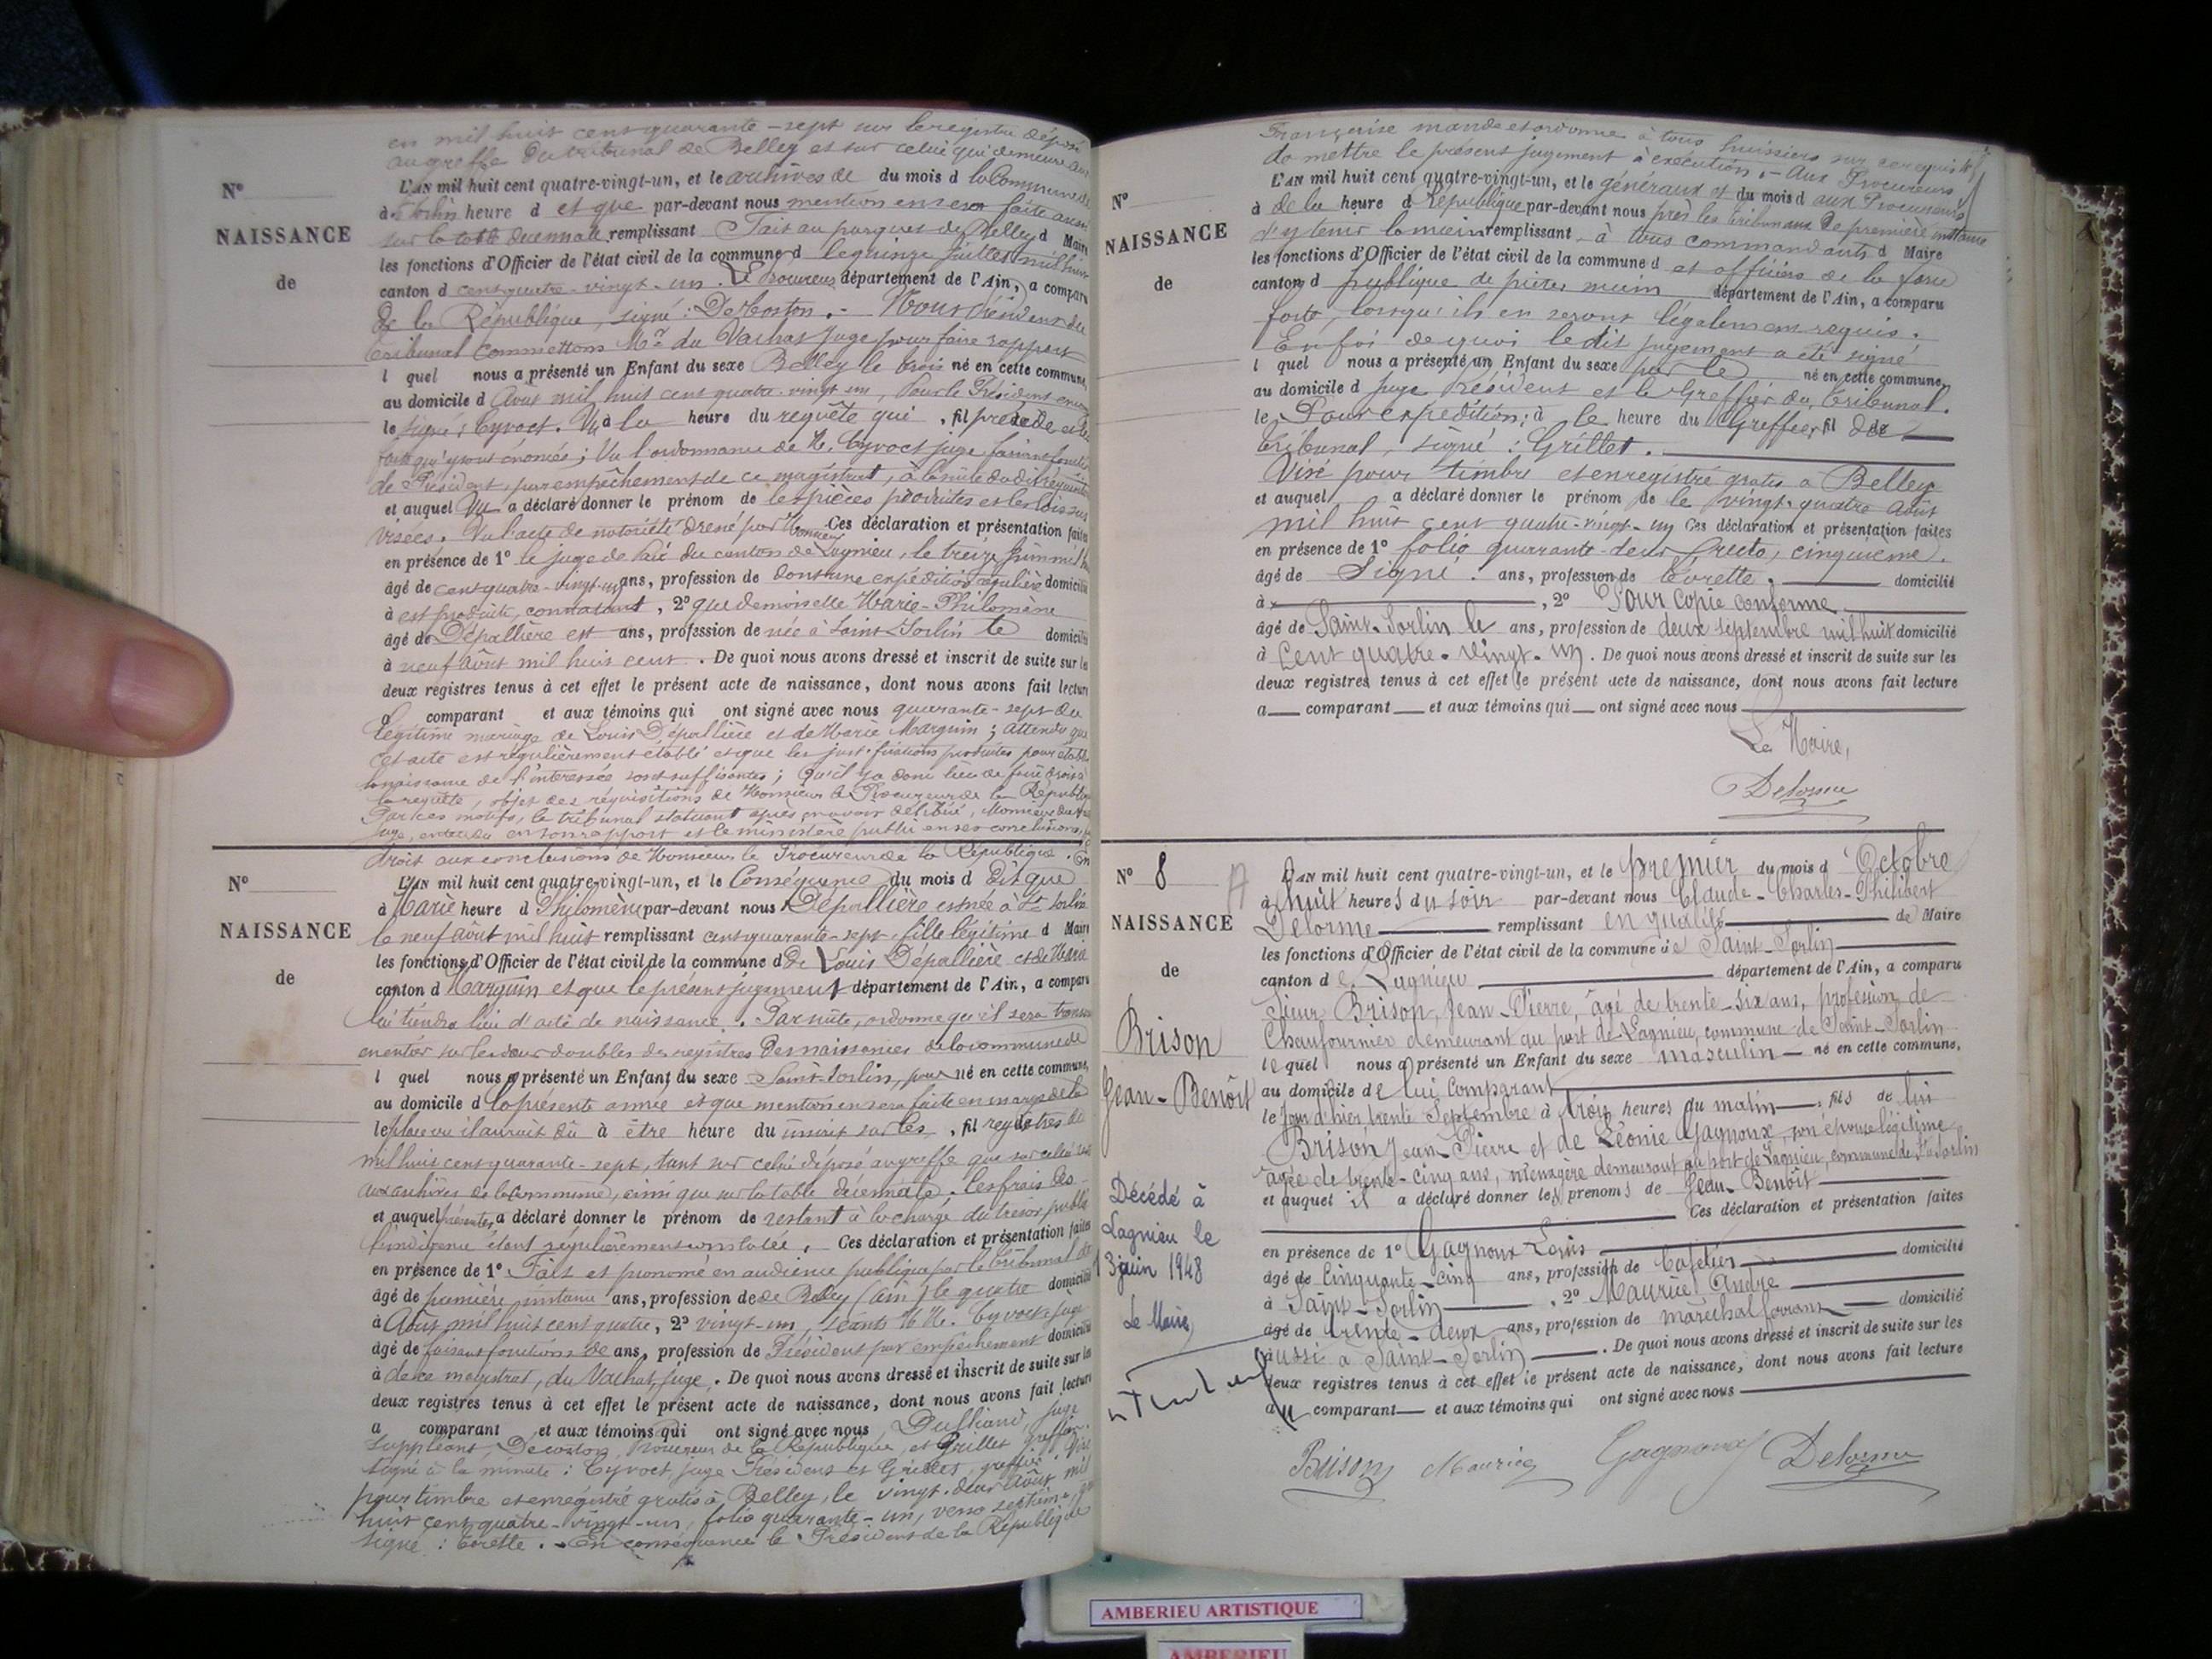 en mil huit cent quarante-sept sur le registre déposé
au greffe du tribunal de Belley et sur celui qui demeure aux
L'AN mil huit cent quatre-vingt-un, et le archives de du mois d la Commune de
N°
à St Sorlin heure d et que par-devant nous mention en sera faite aussi
NAISSANCE
sur la table décennale remplissant Fait au parquet de Belley d Maire
les fonctions d'Officier de l'état civil de la commune d le quinze juillet mil huit
de
canton d cent quatre-vingt-un. Le Procureur département de l'Ain, a comparu
de la République, signé : Decoston. - Nous Président du
tribunal commettons Mr du Vachat Juge pour faire rapport
l quel nous a présenté un Enfant du sexe Belley le trois né en cette commune,
au domicile d Août mil huit cent quatre-vingt-un, Pour le Président
le signé : Cyvoct. Vu à la heure du requête qui , fil précède et les
faits qui y sont énoncés ; Vu l'ordonnance de M. Cyvoct juge faisant fonctions
de Président, par empêchement de ce magistrat, à la suite du dit réquisitoire
et auquel Vu a déclaré donner le prénom de les pièces produites et les lois sus
visées. Vu l'acte de notoriété dressé par Monsieur Ces déclaration et présentation faites
en présence de 1° le juge de Paix du canton de Lagnieu, le treize
âgé de cent quatre-vingt-un ans, profession de dont une expédition régulière domicilié
à est produite, constatant , 2° que demoiselle Marie-Philomène
âgé de Dépallière est ans, profession de née à Saint-Sorlin le domicilié
à neuf août mil huit cent . De quoi nous avons dressé et inscrit de suite sur les
deux registres tenus à cet effet le présent acte de naissance, dont nous avons fait lecture
a comparant et aux témoins qui ont signé avec nous quarante-sept du
légitime mariage de Louis Dépallière et de Marie Marguin ; attendu que
cet acte est régulièrement établi et que les justifications produites pour établir
la naissance de l'intéressée sont suffisantes ; Qu'il y a donc lieu de faire droit à
la requête, objet des réquisitions de Monsieur le Procureur de la République
Par ces motifs, le tribunal statuant après en avoir délibéré, Monsieur du Vachat
juge, entendu en son rapport et le ministère public en ses conclusions,
droit aux conclusions de Monsieur le Procureur de la République. En
N°
L'AN mil huit cent quatre-vingt-un, et le Conséquence du mois d Dit que
à Marie heure d Philomène par-devant nous Dépallière est née à St Sorlin
NAISSANCE
le neuf août mil huit remplissant cent quarante-sept, fille légitime d Maire
les fonctions d'Officier de l'état civil de la commune d De Louis Dépallière et de Marie
de
canton d Marguin et que le présent jugement département de l'Ain, a comparu
lui tiendra lieu d'acte de naissance. Par suite, ordonne qu'il sera transcrit
en entier sur les deux doubles des registres des naissances de la commune de
l quel nous a présenté un Enfant du sexe Saint-Sorlin, pour né en cette commune,
au domicile d la présente année et que mention en sera faite en marge de la
le place où il aurait dû à être heure du inscrit sur les , fil registres de
mil huit cent quarante-sept, tant sur celui déposé au greffe que sur celui
aux archives de la Commune, ainsi que sur la table décennale ; les frais des
et auquel présentes a déclaré donner le prénom de restant à la charge du trésor public
l'indigence étant régulièrement constatée. Ces déclaration et présentation faites
en présence de 1° Fait et prononcé en audience publique par le tribunal de
âgé de première instance ans, profession de de Belley (Ain) le quatre domicilié
à Août mil huit cent quatre, 2° vingt-un, séants M.M. Cyvoct, juge
âgé de faisant fonctions de ans, profession de Président par empêchement domicilié
à de ce magistrat, du Vachat, juge, . De quoi nous avons dressé et inscrit de suite sur les
deux registres tenus à cet effet le présent acte de naissance, dont nous avons fait lecture
a comparant et aux témoins qui ont signé avec nous Dulliand, juge
suppléant, Decoston, Procureur de la République, et Grillet greffier.
Signé à la minute : Cyvoct, juge Président et Grillet, greffier. Visé
pour timbre et enregistré gratis à Belley, le vingt-deux Août mil
huit cent quatre-vingt-un, folio quarante-un, verso septième,
Signé : Eorette. - En conséquence le Président de la République
Française mande et ordonne à tous huissiers sur ce requis
de mettre le présent jugement à exécution. - Aux Procureurs
L'AN mil huit cent quatre-vingt-un, et le généraux et du mois d aux Procureurs
N°
à de la heure d République par-devant nous près les tribunaux de première instance
NAISSANCE
d'y tenir la main remplissant , à tous commandants d Maire
les fonctions d'Officier de l'état civil de la commune d et officiers de la force
de
canton d publique de prêter main département de l'Ain, a comparu
forte, lorsqu'ils en seront légalement requis.
En foi de quoi le dit jugement a été signé
l quel nous a présenté un Enfant du sexe par le né en cette commune,
au domicile d juge Président et le Greffier du tribunal.
le Pour expédition ; à le heure du Greffier, fil du
tribunal, signé : Grillet.
Visé pour timbre et enregistré gratis à Belley
et auquel a déclaré donner le prénom de le vingt-quatre Août
mil huit cent quatre-vingt-un Ces déclaration et présentation faites
en présence de 1° folio quarante-deux, recto, cinquième.
âgé de Signé : ans, profession de Eorette. domicilié
à , 2° Pour copie conforme
âgé de Saint-Sorlin le ans, profession de deux septembre mil huit domicilié
à cent quatre-vingt-un . De quoi nous avons dressé et inscrit de suite sur les
deux registres tenus à cet effet le présent acte de naissance, dont nous avons fait lecture
a comparant et aux témoins qui ont signé avec nous
Le Maire,
Delorme
N° 8
L'AN mil huit cent quatre-vingt-un, et le premier du mois d'Octobre
à huit heures du soir par-devant nous Claude-Charles-Philibert
NAISSANCE
Delorme remplissant en qualité de Maire
les fonctions d'Officier de l'état civil de la commune de Saint-Sorlin
de
canton de Lagnieu département de l'Ain, a comparu
Sieur Brison, Jean-Pierre, âgé de trente-six ans, profession de
Brison
Chaufournier demeurant au port de Lagnieu, commune de Saint-Sorlin
lequel nous a présenté un Enfant du sexe masculin né en cette commune,
Jean-Benoît
au domicile de lui comparant
le jour d'hier, trente Septembre à trois heures du matin , fils de lui
Brison Jean-Pierre et de Léonie Gagnoux, son épouse légitime
âgée de trente-cinq ans, ménagère demeurant au port de Lagnieu, commune de St Sorlin
et auquel il a déclaré donner les prénoms de Jean-Benoît
Ces déclaration et présentation faites
Décédé à
Lagnieu le
3 juin 1948
Le Maire
en présence de 1° Gagnoux Louis
âgé de Cinquante-cinq ans, profession de Cafetier domicilié
à Saint-Sorlin , 2° Maurice André
âgé de trente-deux ans, profession de maréchal ferrant domicilié
aussi à Saint-Sorlin . De quoi nous avons dressé et inscrit de suite sur les
deux registres tenus à cet effet le présent acte de naissance, dont nous avons fait lecture
au comparant et aux témoins qui ont signé avec nous
Brison Maurice Gagnoux Delorme
AMBERIEU ARTISTIQUE
AMBERIEU